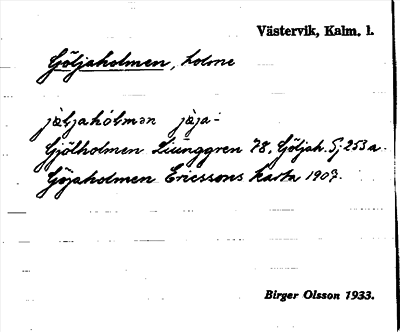 Västervik, Kalm. l.
Göljaholmen, holme
jäljahólmən jäja-
Gjölholmen Liunggren 78, Göljah. Gj 253 a.
Göjaholmen Ericssons karta 1907.
Birger Olsson 1933.